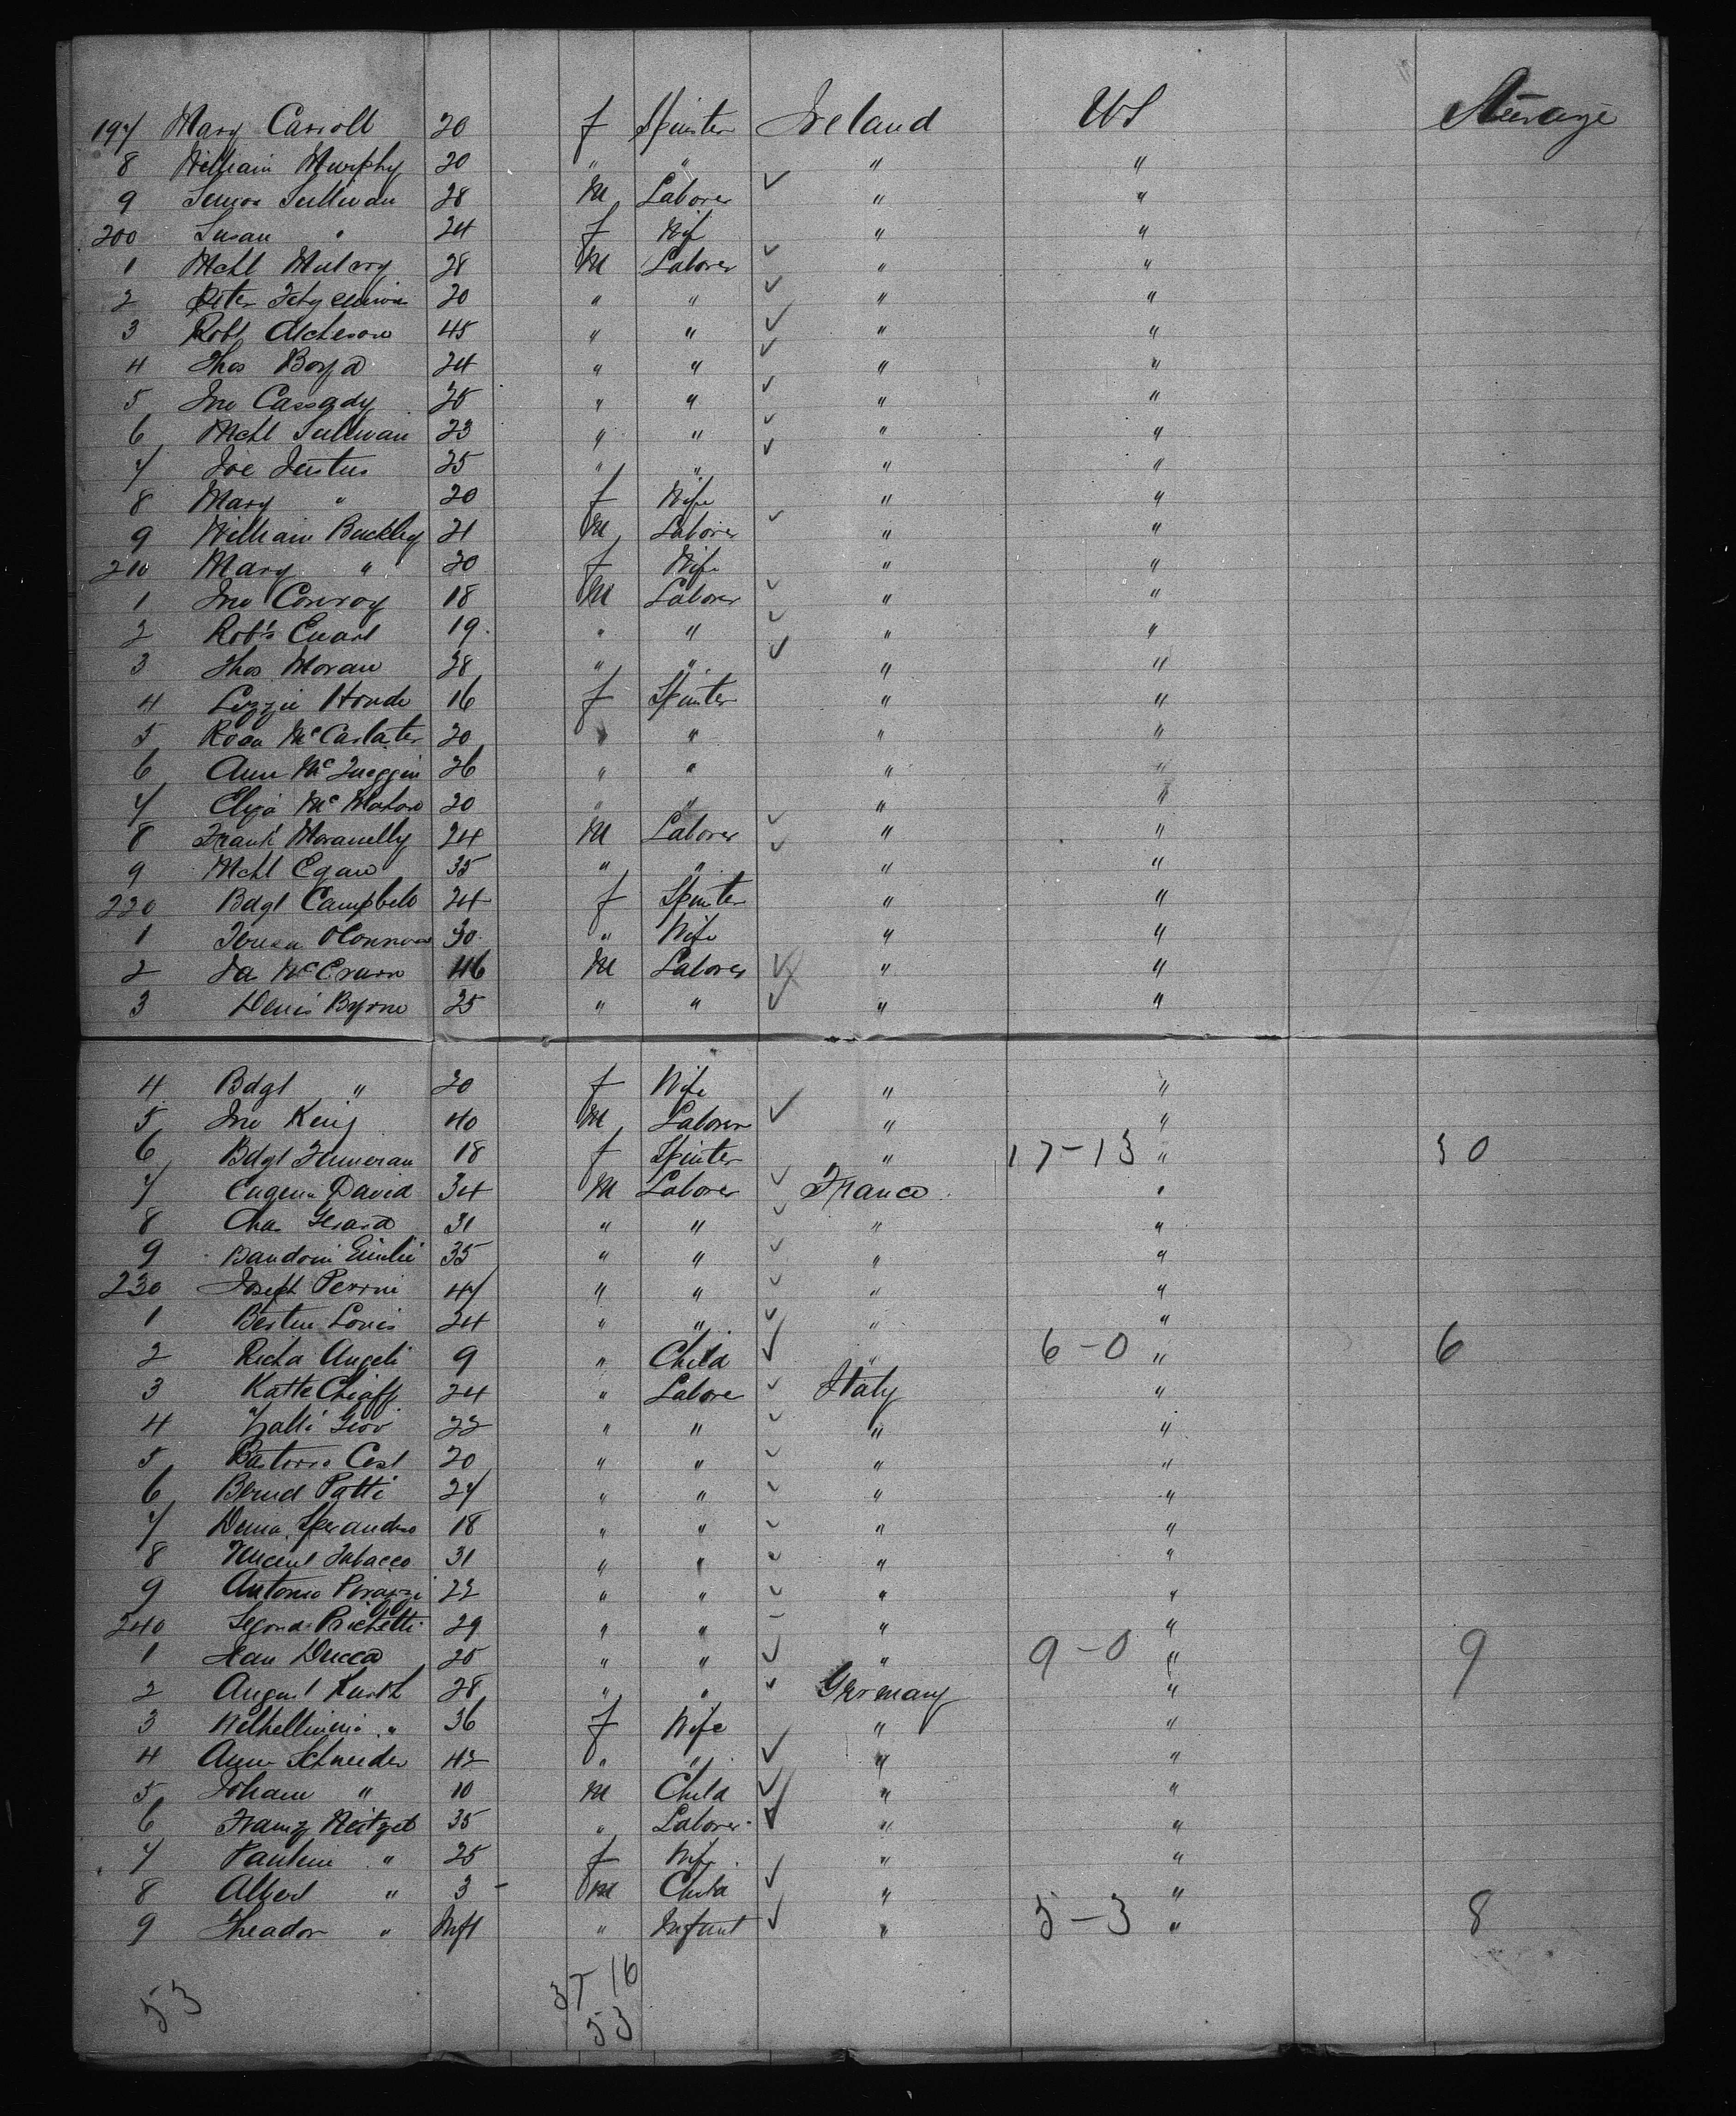 197 Mary Carroll 20 f Spinster Ireland US Steerage
8 William Murphy 20 " " " "
9 Sullivan 28 M Laborer " "
200 Susan " 24 f Wif " "
1 Mchl 28 M Laborer " "
2 Peter 20 " " " "
3 Robt Atcheson 45 " " " "
4 Thos Boyd 24 " " " "
5 Jno Cassady 25 " " " "
6 Mchl Sullivan 23 " " " "
7 Joe Justus 25 " " " "
8 Mary " 20 f Wife " "
9 William Buckley 21 M Laborer " "
210 Mary " 20 f Wife " "
1 Jno Conroy 18 M Laborer " "
2 Robt 19 " " " "
3 Thos Moran 28 " " " "
4 Lizzie 16 f Spinster " "
5 Rosa 20 " " " "
6 Ann 26 " " " "
7 Eliza McMahon 20 " " " "
8 Frank 24 M Laborer " "
9 Mchl Egan 35 " " " "
220 Bdgt Campbell 24 f Spinster " "
1 Teresa OConnor 30 " Wife " "
2 46 M Laborer " "
3 Denis Byrne 25 " " " "
4 Bdgt " 20 f Wife " "
5 Jno King 40 M Laborer " "
6 Bdgt Finneran 18 f Spinster " 17-13 " 30
7 Eugene David 34 M Laborer France "
8 Chas Gerard 31 " " " "
9 Baudoin Emilie 35 " " " "
230 Joseph Perrini 47 " " " "
1 Louis 24 " " " "
2 Richa Angeli 9 " Child " 6-0 " 6
3 Katte Chiaff 24 " Labore Italy "
4 Giov 22 " " " "
5 20 " " " "
6 Bernd Patti 27 " " " "
7 Sperandio 18 " " " "
8 Vincent Tabacco 31 " " " "
9 Antonio Perazzi 22 " " " "
240 Segond Prichetti 29 " " " "
1 Ducca 25 " " " 9-0 " 9
2 August Kurth 28 " " Germany "
3 36 f Wife " "
4 Ann Schneider 42 " " " "
5 Johann " 10 M Child " "
6 Franz 35 " Laborer " "
7 Pauline " 25 f Wife " "
8 Albert " 3 M Child " "
9 Theador " Inft " Infant " 5-3 " 8
37 16
53 53